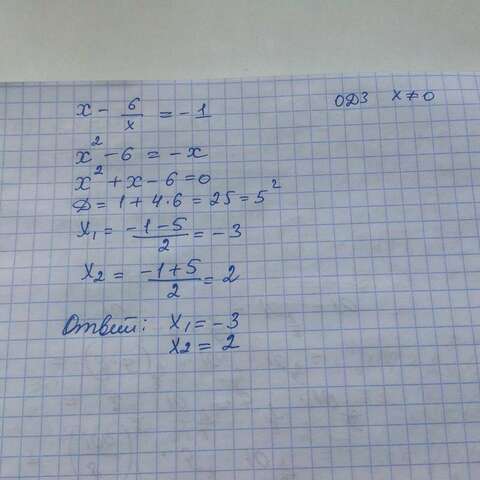 x - 6/x = -1 ОДЗ x ≠ 0
x² - 6 = -x
x² + x - 6 = 0
D = 1 + 4·6 = 25 = 5²
x₁ = (-1-5)/2 = -3
x₂ = (-1+5)/2 = 2
Ответ: x₁ = -3
x₂ = 2